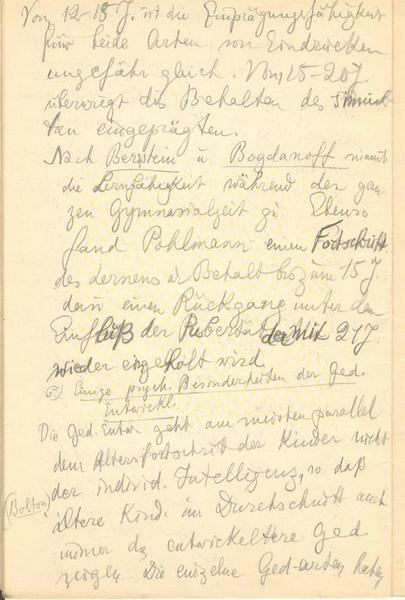 Vom 12-13 J. ist die Einprägungsfähigkeit
für beide Arten von Eindrücken
ungefähr gleich. Vom 15-20 J.
überwiegt das Behalten des
eingeprägten.
Nach Bernstein u Bogdanoff nimmt
die Lernfähigkeit während der gan-
zen Gymnasialzeit zu. Ebenso
fand Pohlmann einen Fortschritt
des Lernens u Behalt bis zum 15 J.
dann einen Rückgang unter dem
Einfluß der Pubertät der Mit 21 J
wieder eingeholt wird.
6) Einige psych. Besonderheiten der Ged.
Entwickl.
Die Ged. Entw. geht am meisten parallel
dem Altersfortschritt der Kinder nicht
der individ. Intelligenz, so daß
(Bolton) ältere Kind. im Durchschnitt auch
immer das entwickeltere Ged.
zeigen. Die einzelne Ged-arten haben